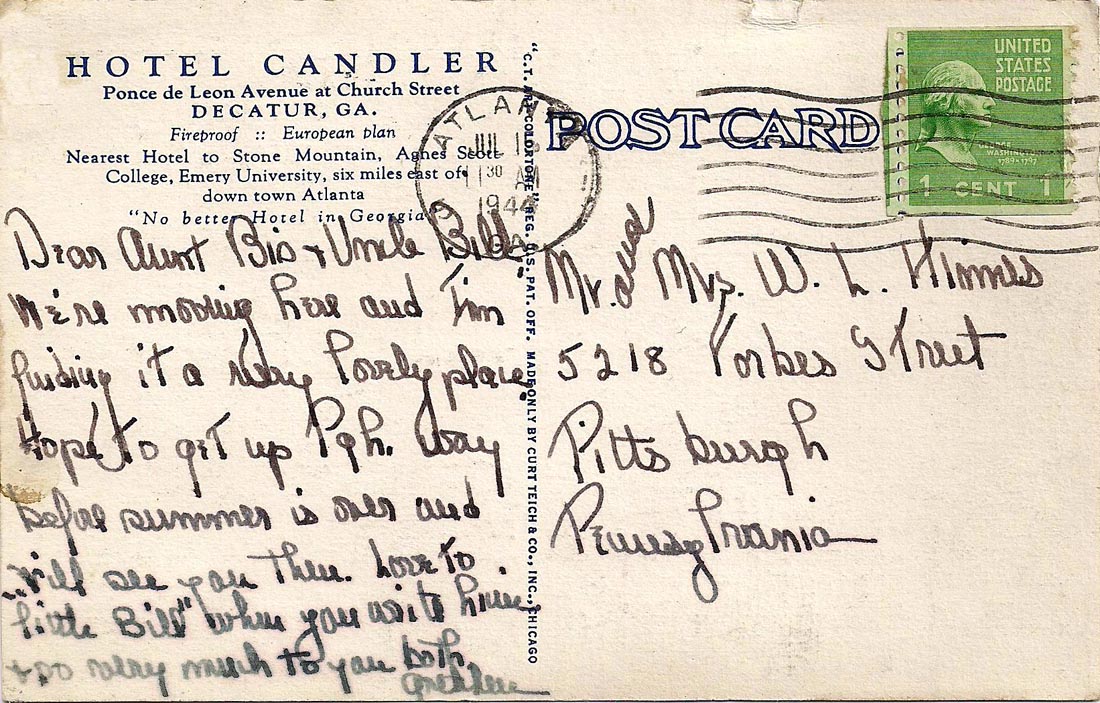 HOTEL CANDLER
Ponce de Leon Avenue at Church Street
DECATUR, GA.
Fireproof :: European plan
Nearest Hotel to Stone Mountain, Agnes Scott
College, Emery University, six miles east of
down town Atlanta
"No better Hotel in Georgia"
Dear Aunt Bis + Uncle Bill,
We're moving here and I'm
finding it a very lovely place.
Hope to get up Pgh. way
before summer is over and
will see you then. Love to
"little Bill" when you write him.
+ so very much to you both,
"C.T. ART-COLORTONE" REG. U.S. PAT. OFF. MADE ONLY BY CURT TEICH & CO., INC., CHICAGO
POST CARD
ATLANTA
JUL
11 30 AM
1944
GA.
UNITED
STATES
POSTAGE
GEORGE
WASHINGTON
1789-1797
1 CENT 1
Mr. and Mrs. W. L. Himes
5218 Forbes Street
Pittsburgh
Pennsylvania